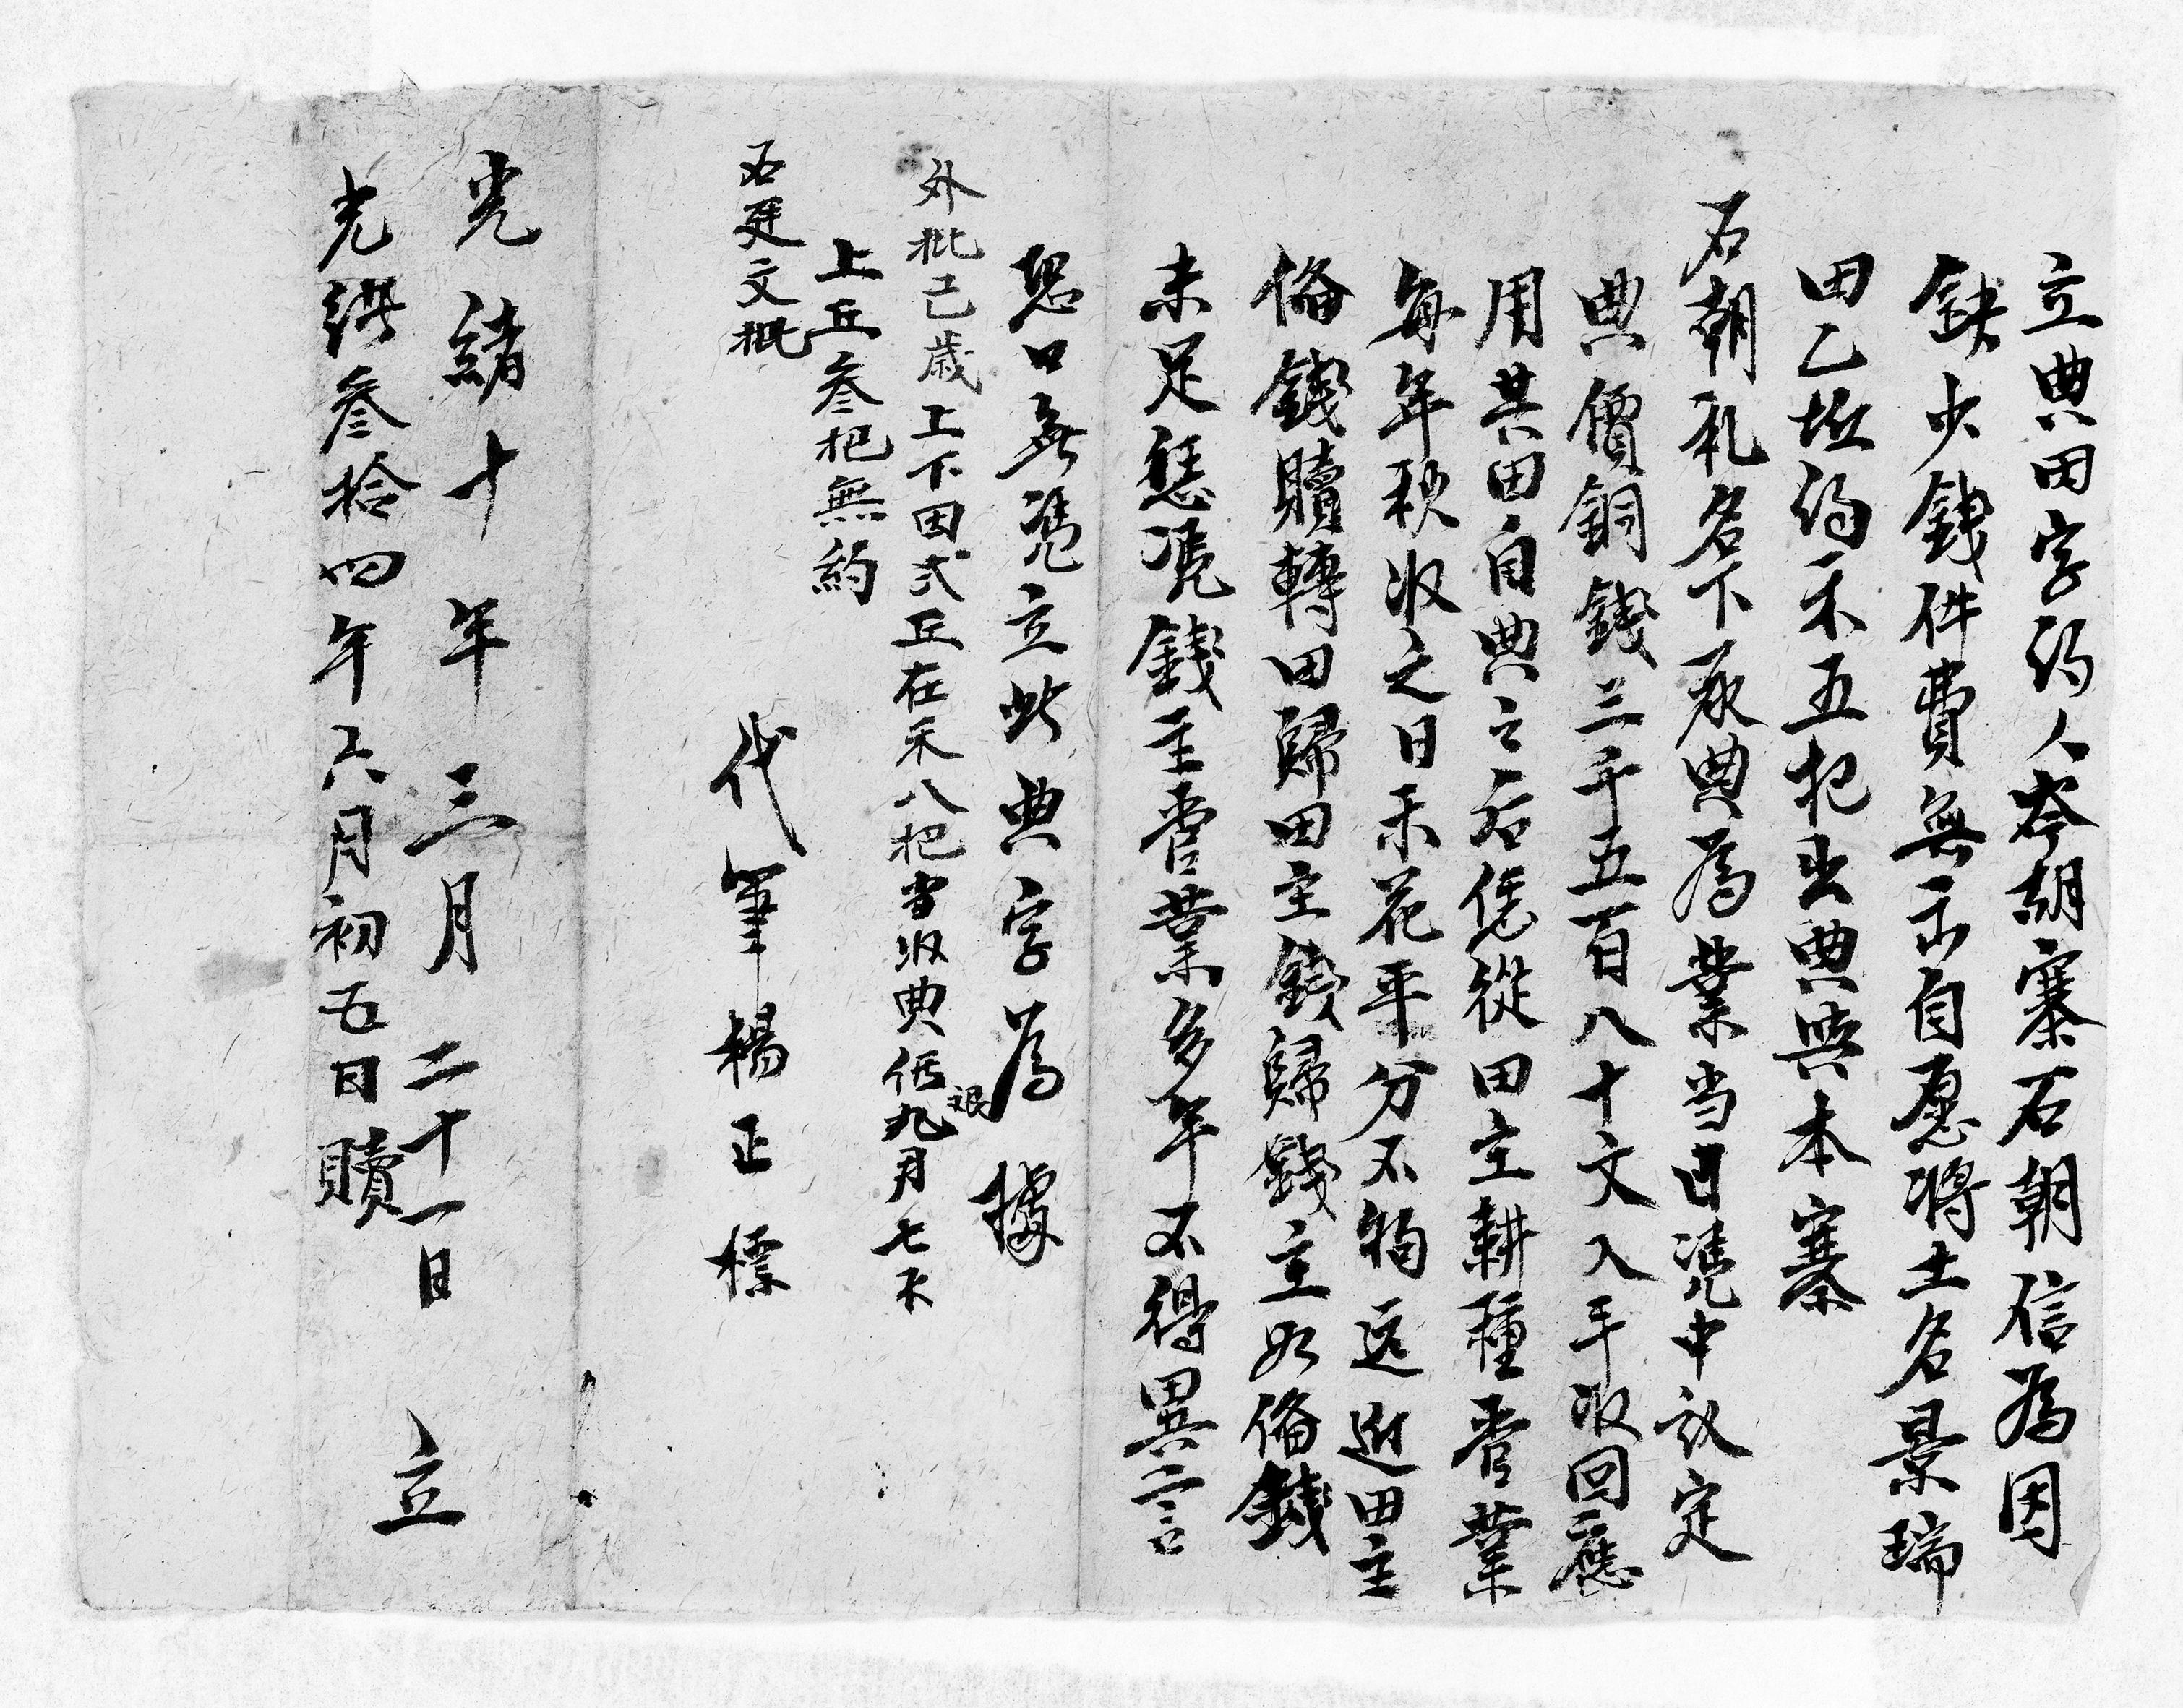 立典田字約人岑胡寨石朝信為因
缺少錢件費無示自愿將土名景瑞
田乙坵約禾五把出典與本寨
石朝礼名下承典為業当日凭中议定
典價銅錢三千五百八十文入手收回應
用其田自典之后凭從田主耕種管業
每年秋收之日禾花平分不拘远近田主
俻錢贖轉田歸田主錢歸錢主如俻錢
未足恁凭錢主管業多年不得異言
恐口無凭立此典字為據
外批己歲上下田弍丘在禾八把当收典伝艮九月七不
上丘叁把無約
石廷文批
代筆楊正標
光緒十年三月二十一日立
光緒叁拾四年六月初五日贖